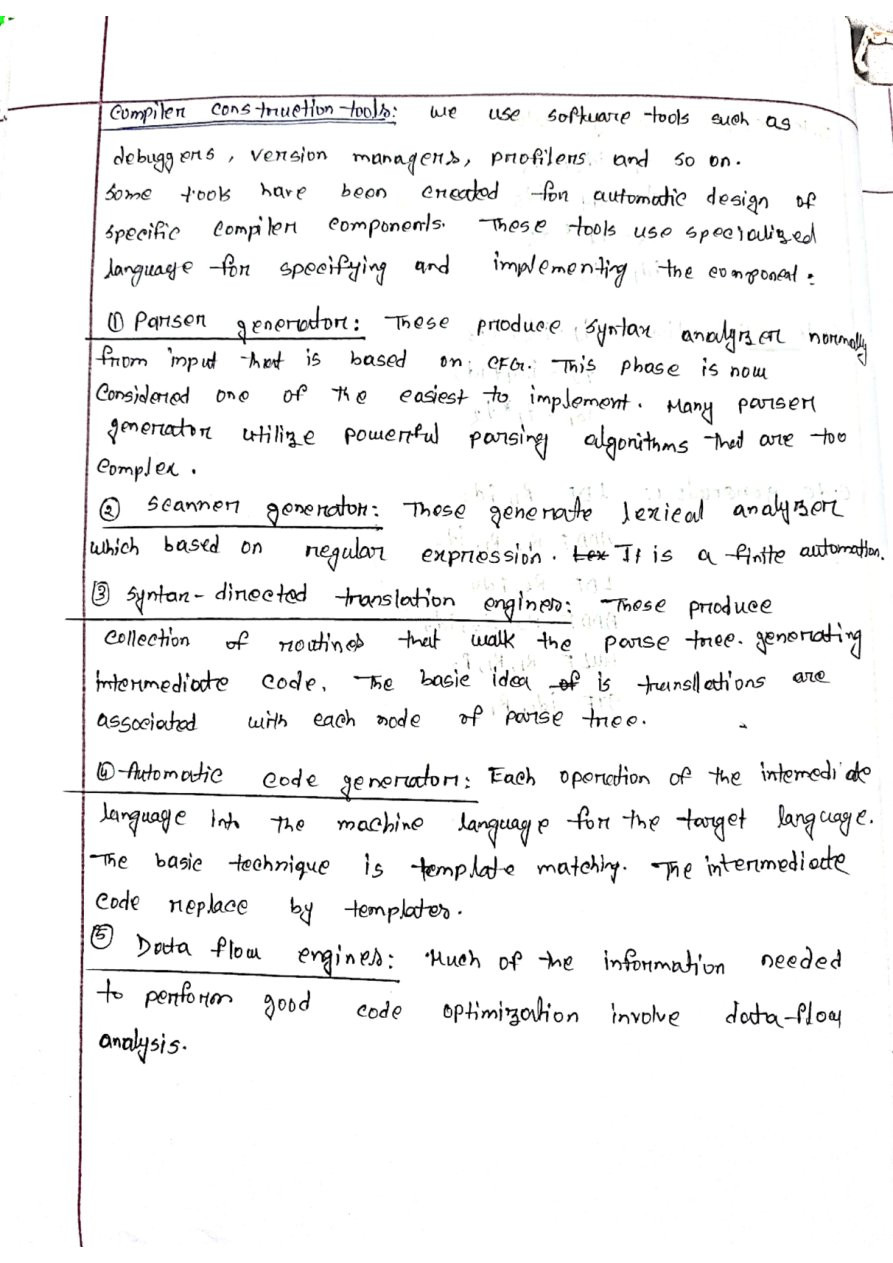 Compiler construction tools: We use software tools such as
debuggers, version managers, profilers and so on.
Some tools have been created for automatic design of
specific compiler components. These tools use specialized
language for specifying and implementing the component:
① Parser generator: These produce syntax analyzer normally
from input that is based on CFG. This phase is now
Considered one of the easiest to implement. Many parser
generator utilize powerful parsing algorithms that are too
complex.
② Scanner generator: These generate lexical analyzer
which based on regular expression. Lex It is a finite automation.
③ Syntax-directed translation engines: These produce
collection of routines that walk the parse tree. generating
intermediate code. The basic idea of is transllations are
associated with each node of parse tree.
④ Automatic code generator: Each operation of the intemediate
language into the machine language for the target language.
The basic technique is template matching. The intermediate
code replace by templates.
⑤ Data flow engines: Much of the information needed
to perform good code optimization involve data-flow
analysis.